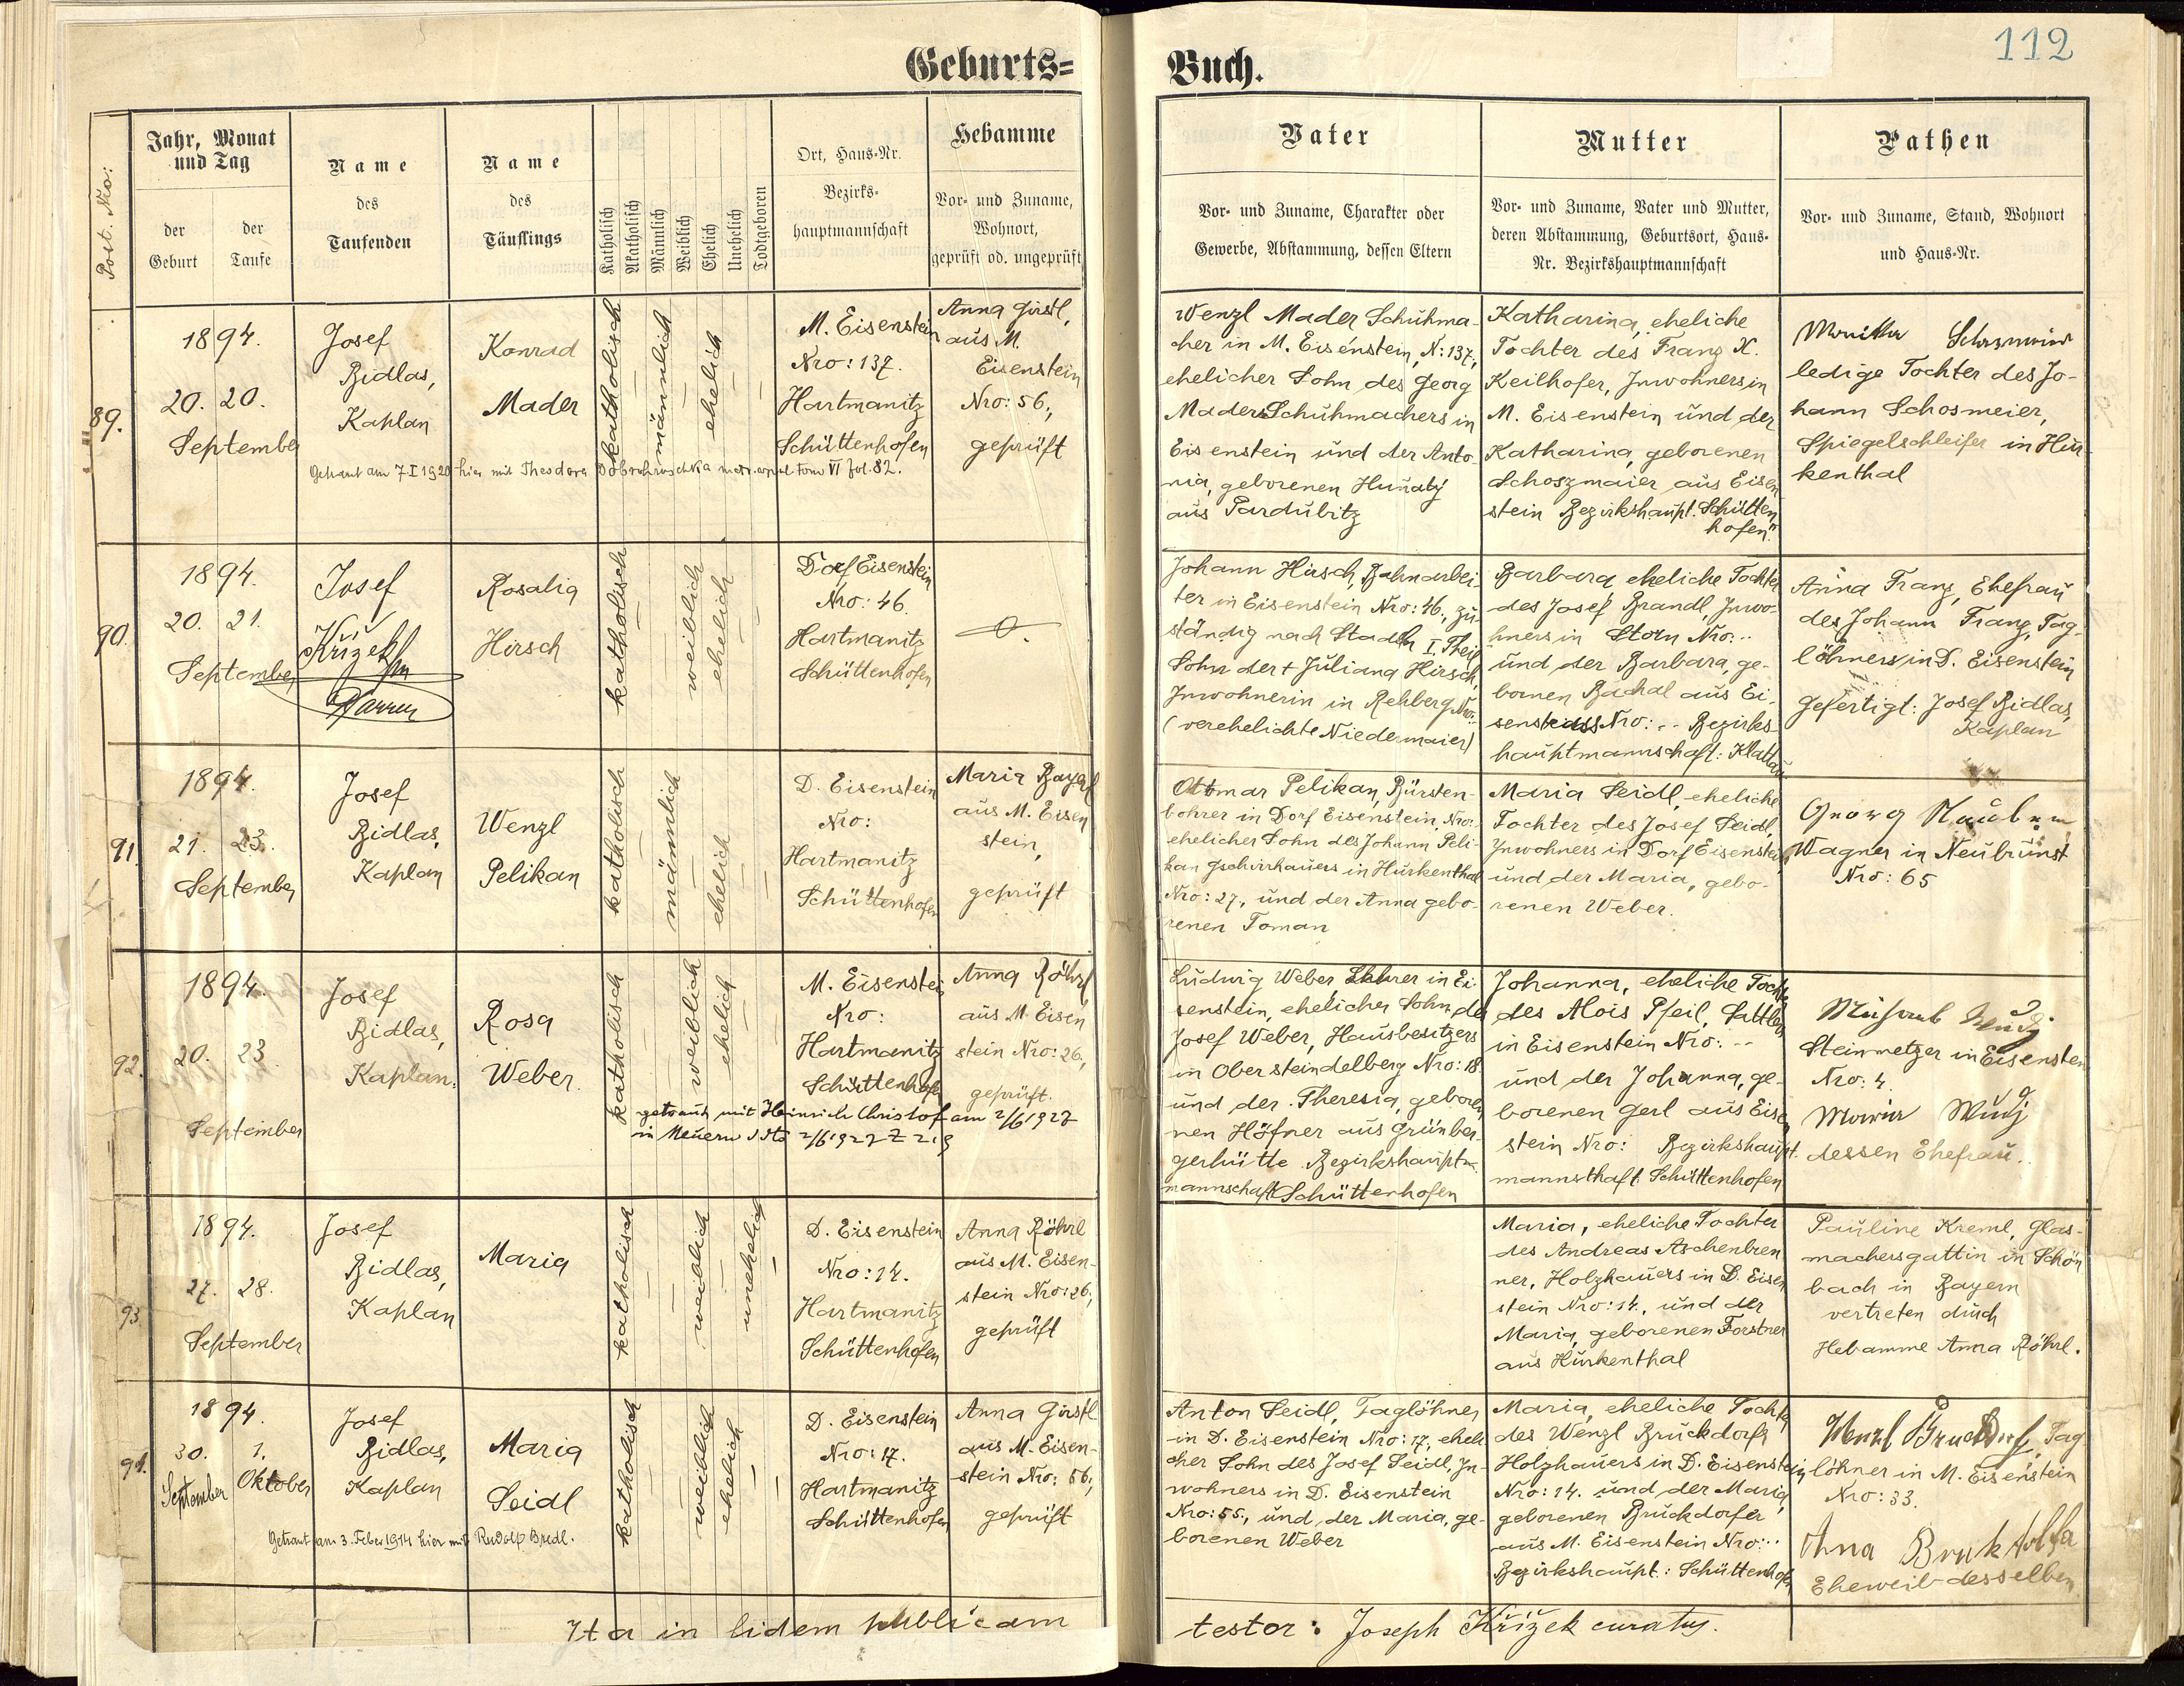 112
Geburts= Buch.
Post. Nro:
Jahr, Monat
und Tag
der
Geburt
der
Taufe
Name
des
Taufenden
Name
des
Täuflings
Katholisch
Akatholisch
Männlich
Weiblich
Ehelich
Unehelich
Todtgeboren
Ort, Haus-Nr.
Bezirks-
hauptmannschaft
Hebamme
Vor- und Zuname,
Wohnort,
geprüft od. ungeprüft
Vater
Vor- und Zuname, Charakter oder
Gewerbe, Abstammung, dessen Eltern
Mutter
Vor- und Zuname, Vater und Mutter,
deren Abstammung, Geburtsort, Haus-
Nr. Bezirkshauptmannschaft
Pathen
Vor- und Zuname, Stand, Wohnort
und Haus-Nr.
89.
1894.
20. 20.
September
Josef
Bidlas,
Kaplan
Konrad
Mader
katholisch
männlich
ehelich
M. Eisenstein
Nro: 137.
Hartmanitz
Schüttenhofen
Anna Girstl,
aus M.
Eisenstein
Nro: 56,
geprüft
Getraut am 7 I 1920 hier mit Theodora tom VI fol. 82.
Wenzl Mader Schuhma-
cher in M. Eisenstein, N: 137,
ehelicher Sohn des Georg
Mader Schuhmachers in
Eisenstein und der Anto-
nia, geborenen Hunatý
aus Pardubitz
Katharina, eheliche
Tochter des Franz X.
Keilhofer, Inwohners in
M. Eisenstein und der
Katharina, geborenen
Schoszmaier aus Eisen
stein Bezirkshaupt. Schütten
hofen
ledige Tochter des Jo-
hann Schosmeier,
Spiegelschleifer in Hur
kenthal
90.
1894.
20. 21.
September
Josef
Křížek
Pfarrer
Rosalia
Hirsch
katholisch
weiblich
ehelich
Dorf Eisenstein
Nro: 46.
Hartmanitz
Schüttenhofen
Johann Hirsch, Bahnarbei-
ter in Eisenstein Nro: 46, zu-
ständig nach Stadln I. Theil
Sohn der + Juliana Hirsch,
Inwohnerin in Rehberg Nro:
(verehelichte Niedermaier)
Barbara, eheliche Tochter
des Josef Brandl, Inwo-
hners in Storn Nro: ..
und der Barbara, ge-
bornen Bachal aus Ei-
senstrass Nro: .. Bezirks
hauptmannschaft: Klattau
Anna Franz, Ehefrau
des Johann Franz, Tag-
löhners in D. Eisenstein
Gefertigt: Josef Bidlas,
Kaplan
91.
1894.
21. 23.
September
Josef
Bidlas,
Kaplan
Wenzl
Pelikan
katholisch
männlich
ehelich
D. Eisenstein
Nro:
Hartmanitz
Schüttenhofen
Maria Bayerl
aus M. Eisen
stein,
geprüft
Ottmar Pelikan, Bürsten-
bohrer in Dorf Eisenstein, Nro:
ehelicher Sohn des Johann Peli-
kan Gschirrhauers in Hurkenthal
Nro: 27, und der Anna gebo-
renen Toman
Maria Seidl, eheliche
Tochter des Josef Seidl,
Inwohners in Dorf Eisenstein,
und der Maria, gebo-
renen Weber.
Georg
Wagner in Neubrunst
Nro: 65
92.
1894.
20. 23
September
Josef
Bidlas,
Kaplan.
Rosa
Weber.
katholisch
weiblich
ehelich
M. Eisenstein
Nro:
Hartmanitz
Schüttenhofen
Anna Röhrl
aus M. Eisen
stein Nro: 26,
geprüft.
getraut mit Heinrich Christof am 2/6 1927
in Neuern dto 2/6 1927 Z 219
Ludwig Weber Lehrer in Ei-
senstein, ehelicher Sohn des
Josef Weber, Hausbesitzers
in Ober steindelberg Nro: 18
und der Theresia, gebore-
nen Höfner aus Grünber-
gerhütte Bezirkshaupt-
mannschaft Schüttenhofen
Johanna, eheliche Tochter
des Alois Pfeil, Sattlers
in Eisenstein Nro: ..
und der Johanna, ge-
borenen Gerl aus Eisen
stein Nro: Bezirkshaupt.
mannsthaft Schüttenhofen
Steinmetzer in Eisenstein
Nro: 4.
dessen Ehefrau.
93.
1894.
27. 28.
September
Josef
Bidlas,
Kaplan
Maria
katholisch
weiblich
unehelich
D. Eisenstein
Nro: 14.
Hartmanitz
Schüttenhofen
Anna Röhrl
aus M. Eisen-
stein Nro: 26,
geprüft
Maria, eheliche Tochter
des Andreas Aschenbren
ner, Holzhauers in D. Eisen
stein Nro: 14, und der
Maria, geborenen Forstner
aus Hurkenthal
Pauline Kreml, Glas-
machersgattin in Schön
bach in Bayern
vertreten durch
Hebamme Anna Röhrl.
94.
1894.
30. 1.
September Oktober
Josef
Bidlas,
Kaplan
Maria
Seidl
katholisch
weiblich
ehelich
D. Eisenstein
Nro: 17.
Hartmanitz
Schüttenhofen
Anna Girstl
aus M. Eisen-
stein Nro: 56,
geprüft
Getraut am 3. Feber 1914 hier mit Rudolf Bredl.
Anton Seidl, Taglöhner
in D. Eisenstein Nro: 17, eheli
cher Sohn des Josef Seidl, In-
wohners in D. Eisenstein
Nro: 55, und der Maria, ge-
borenen Weber
Maria, eheliche Tochter
des Wenzl Bruckdorfer
Holzhauers in D. Eisenstein,
Nro: 14. und der Maria,
geborenen Bruckdorfer
aus M. Eisenstein Nro: ..
Bezirkshaupt.: Schüttenhofen
Wenzl Tag
löhner in M. Eisenstein
Nro: 33.
Anna
Eheweib desselben
Ita in fidem publicam testor: Joseph Křížek curatus.